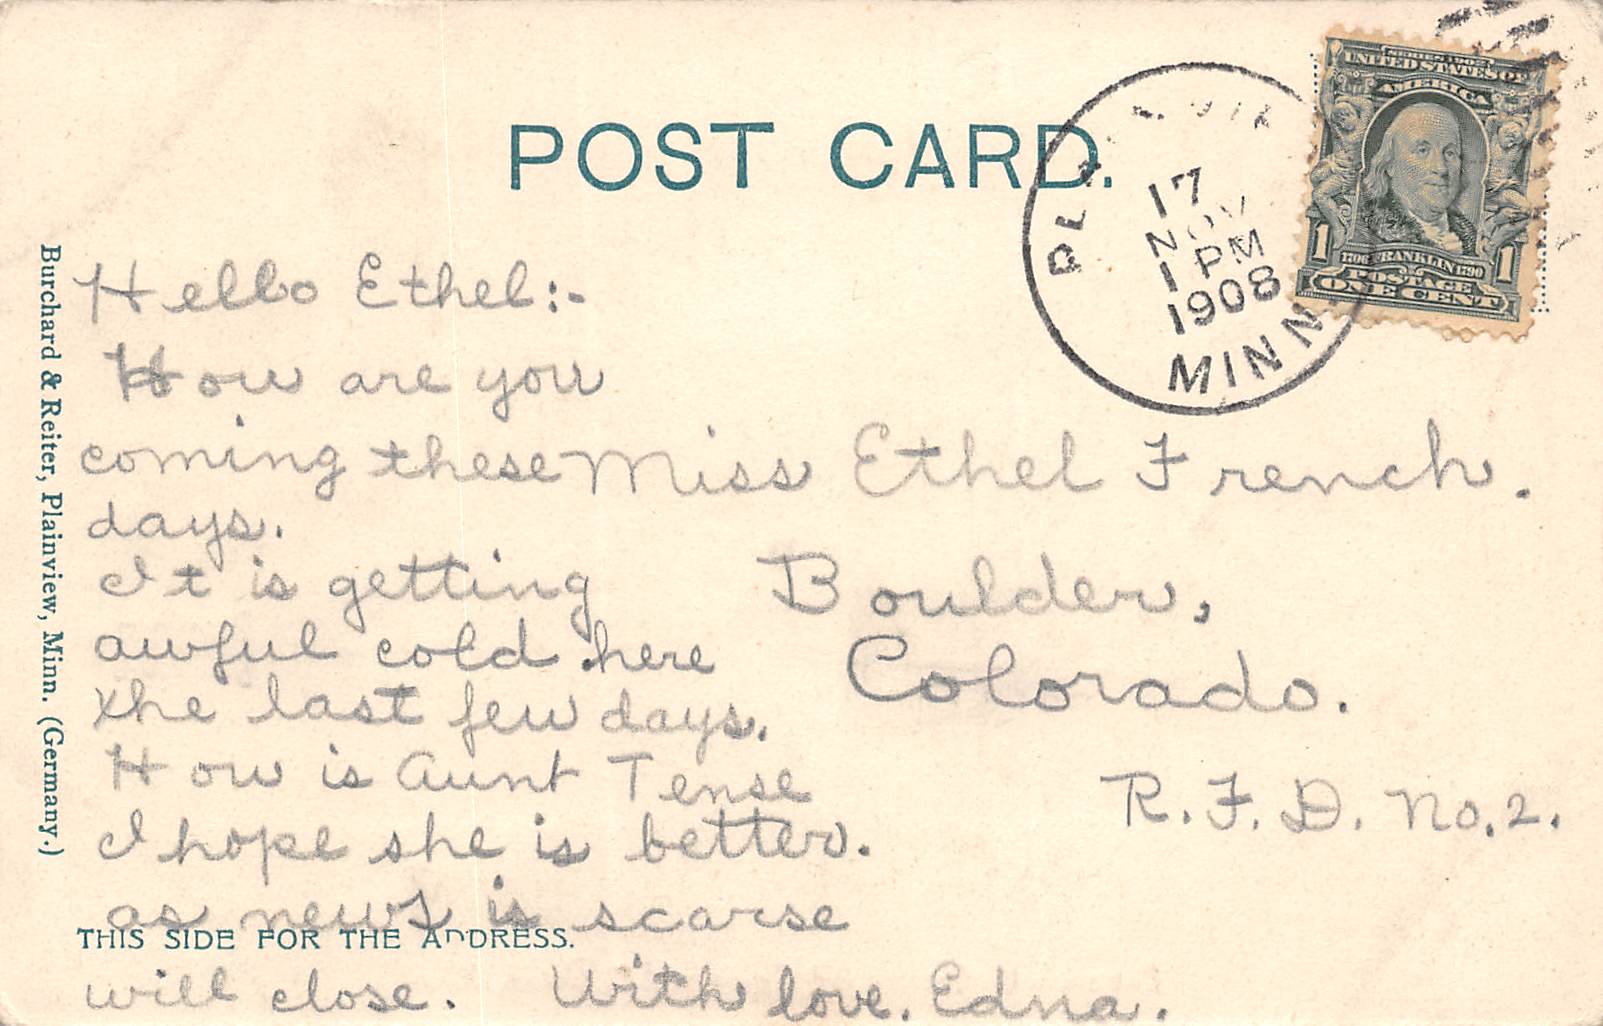 POST CARD.
PLAINVIEW
17
NOV
1 PM
1908
MINN
SERIES 1902
UNITED STATES OF
AMERICA
1706 FRANKLIN 1790
1 1
POSTAGE
ONE CENT
Burchard & Reiter, Plainview, Minn. (Germany.)
Hello Ethel:-
How are you
coming these
days.
It is getting
awful cold here
the last few days.
How is Aunt Tense
I hope she is better.
as news is scarse
THIS SIDE FOR THE ADDRESS.
will close. With love. Edna.
Miss Ethel French.
Boulder,
Colorado.
R. F. D. No. 2.